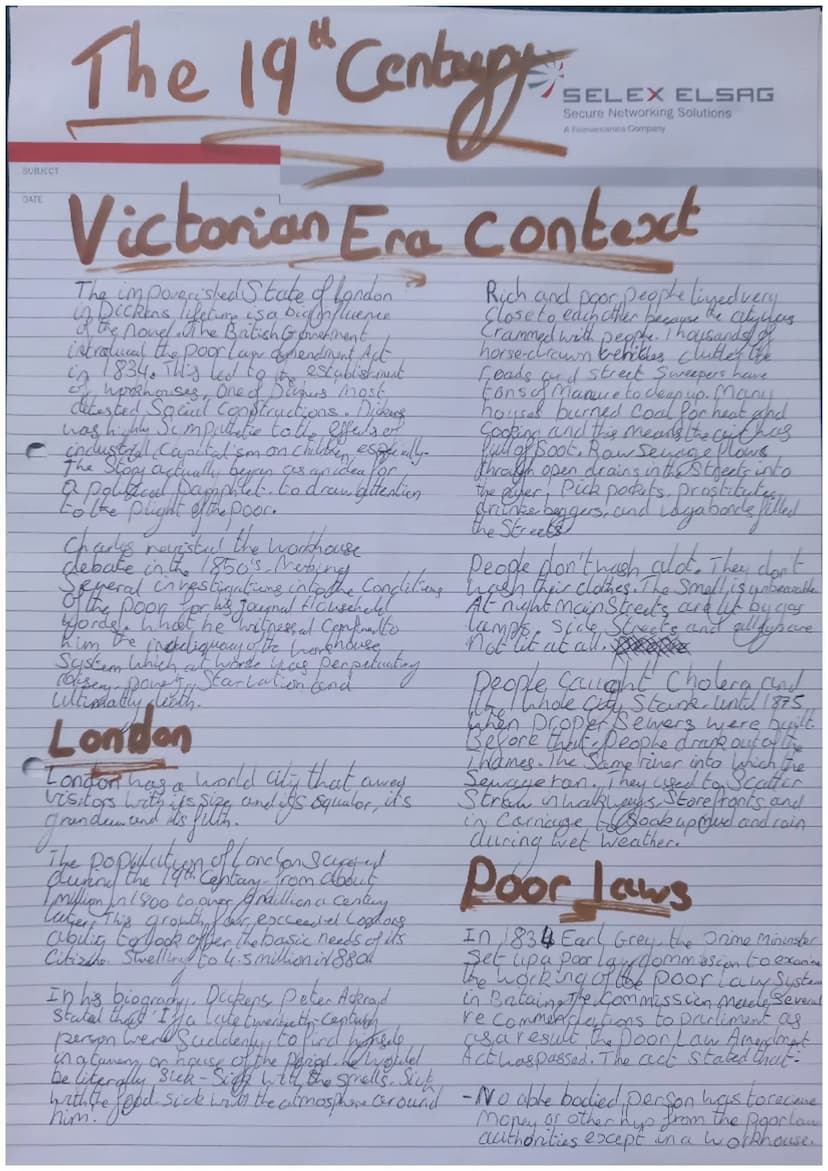 The 19th Century
SELEX ELSAG
Secure Networking Solutions
A Finmeccanica Company
SUBJECT
DATE
Victorian Era Context
The impoverished State of London
in Dickens lifetime is a big influence
of the novel. The British Government
introduced the poor law amendment Act
in 1834. This led to the establishment
of workhouses, One of Dickens most
detested Social Constructions. Dickens
was highly Sympathetic to the effects of
industrial Capitalism on children, especially.
The Story actually began as an idea for
a political Pamphlet. to draw attention
to the plight of the poor.
Charles revisited the workhouse
debate in the 1850's. Making
Several investigations into the Conditions
of the poor for his journal Household
Words. What he witnessed Confirmed to
him the of the workhouse
System which at worse was perpetuating
misery, poverty, Starvation and
Ultimately death.
London
London was a world city that awed
visitors with its size and its squalor, its
grandeur and its filth.
The population of London Surged
during the 19th Century - from about
1 million in 1800 to over million a century
later. This growth far exceeded Londons
ability to look after the basic needs of its
Citizens. Swelling to 4.5 million in 1880
In his biography, Dickens, Peter Ackroyd
stated that 'If a late twentieth-century
person were Suddenly to find himself
in a tavern or house of the period he would
be literally Sick - Sick with the smells. Sick
with the food. sick with the atmosphere around
him.
Rich and poor people lived very
close to each other because the city was
Crammed with people. Thousands of
horse-drawn vehicles clutter the
roads and street Sweepers have
tons of Manure to clean up. Many
houses burned Coal for heat and
Cooking and this means the air was
full of Soot. Raw Sewage flows
through open drains in the Streets into
the river. Pick pockets, prostitutes,
drunks beggers, and vagabonds filled
the Streets
People don't wash alot. They don't
wash their clothes. The Smell is unbearable
At night main Streets are lit by gas
lamps. Side Streets and alleys are
not lit at all.
People caught Cholera and
the Whole City Stank. until 1875
when proper Sewers were built
Before that, people drank out of the
Thames. The Same river into which the
Sewage ran. They used to Scatter
Straw in walkways, Storefronts and
in Carriage to Soak up mud and rain
during wet weather.
Poor laws
In 1834 Earl Grey, the Prime Minister
Set up a Poor law Commission to examine
the working of the poor Law System
in Britain. The Commission made Several
recommendations to Parliment as
as a result the Poor Law Amendment
Act was passed. The act stated that:
- No able bodied person was to receive
Money or other help from the Poor law
authorities except in a workhouse.